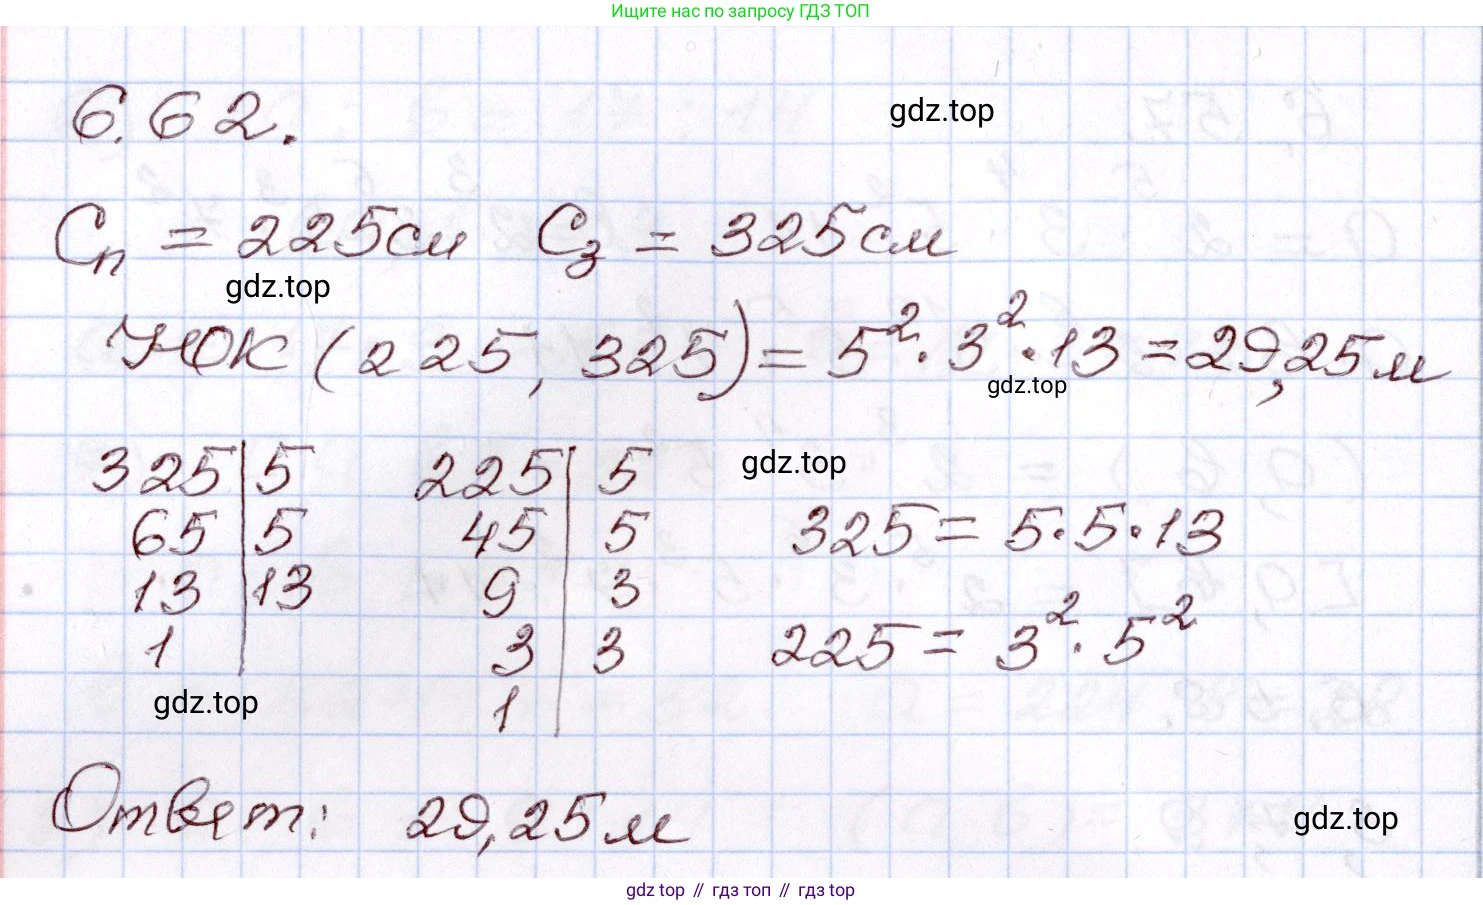 Ищите нас по запросу ГДЗ ТОП
6.62.
gdz.top
Cп = 225см Cз = 325см
gdz.top
НОК (225, 325) = 5²·3²·13 = 29,25 м
gdz.top
325 | 5 225 | 5
gdz.top
65 | 5 45 | 5 325 = 5·5·13
13 | 13 9 | 3
1 3 | 3 225 = 3²·5²
gdz.top
1
Ответ: 29,25 м
gdz.top
gdz top // гдз топ // gdz top